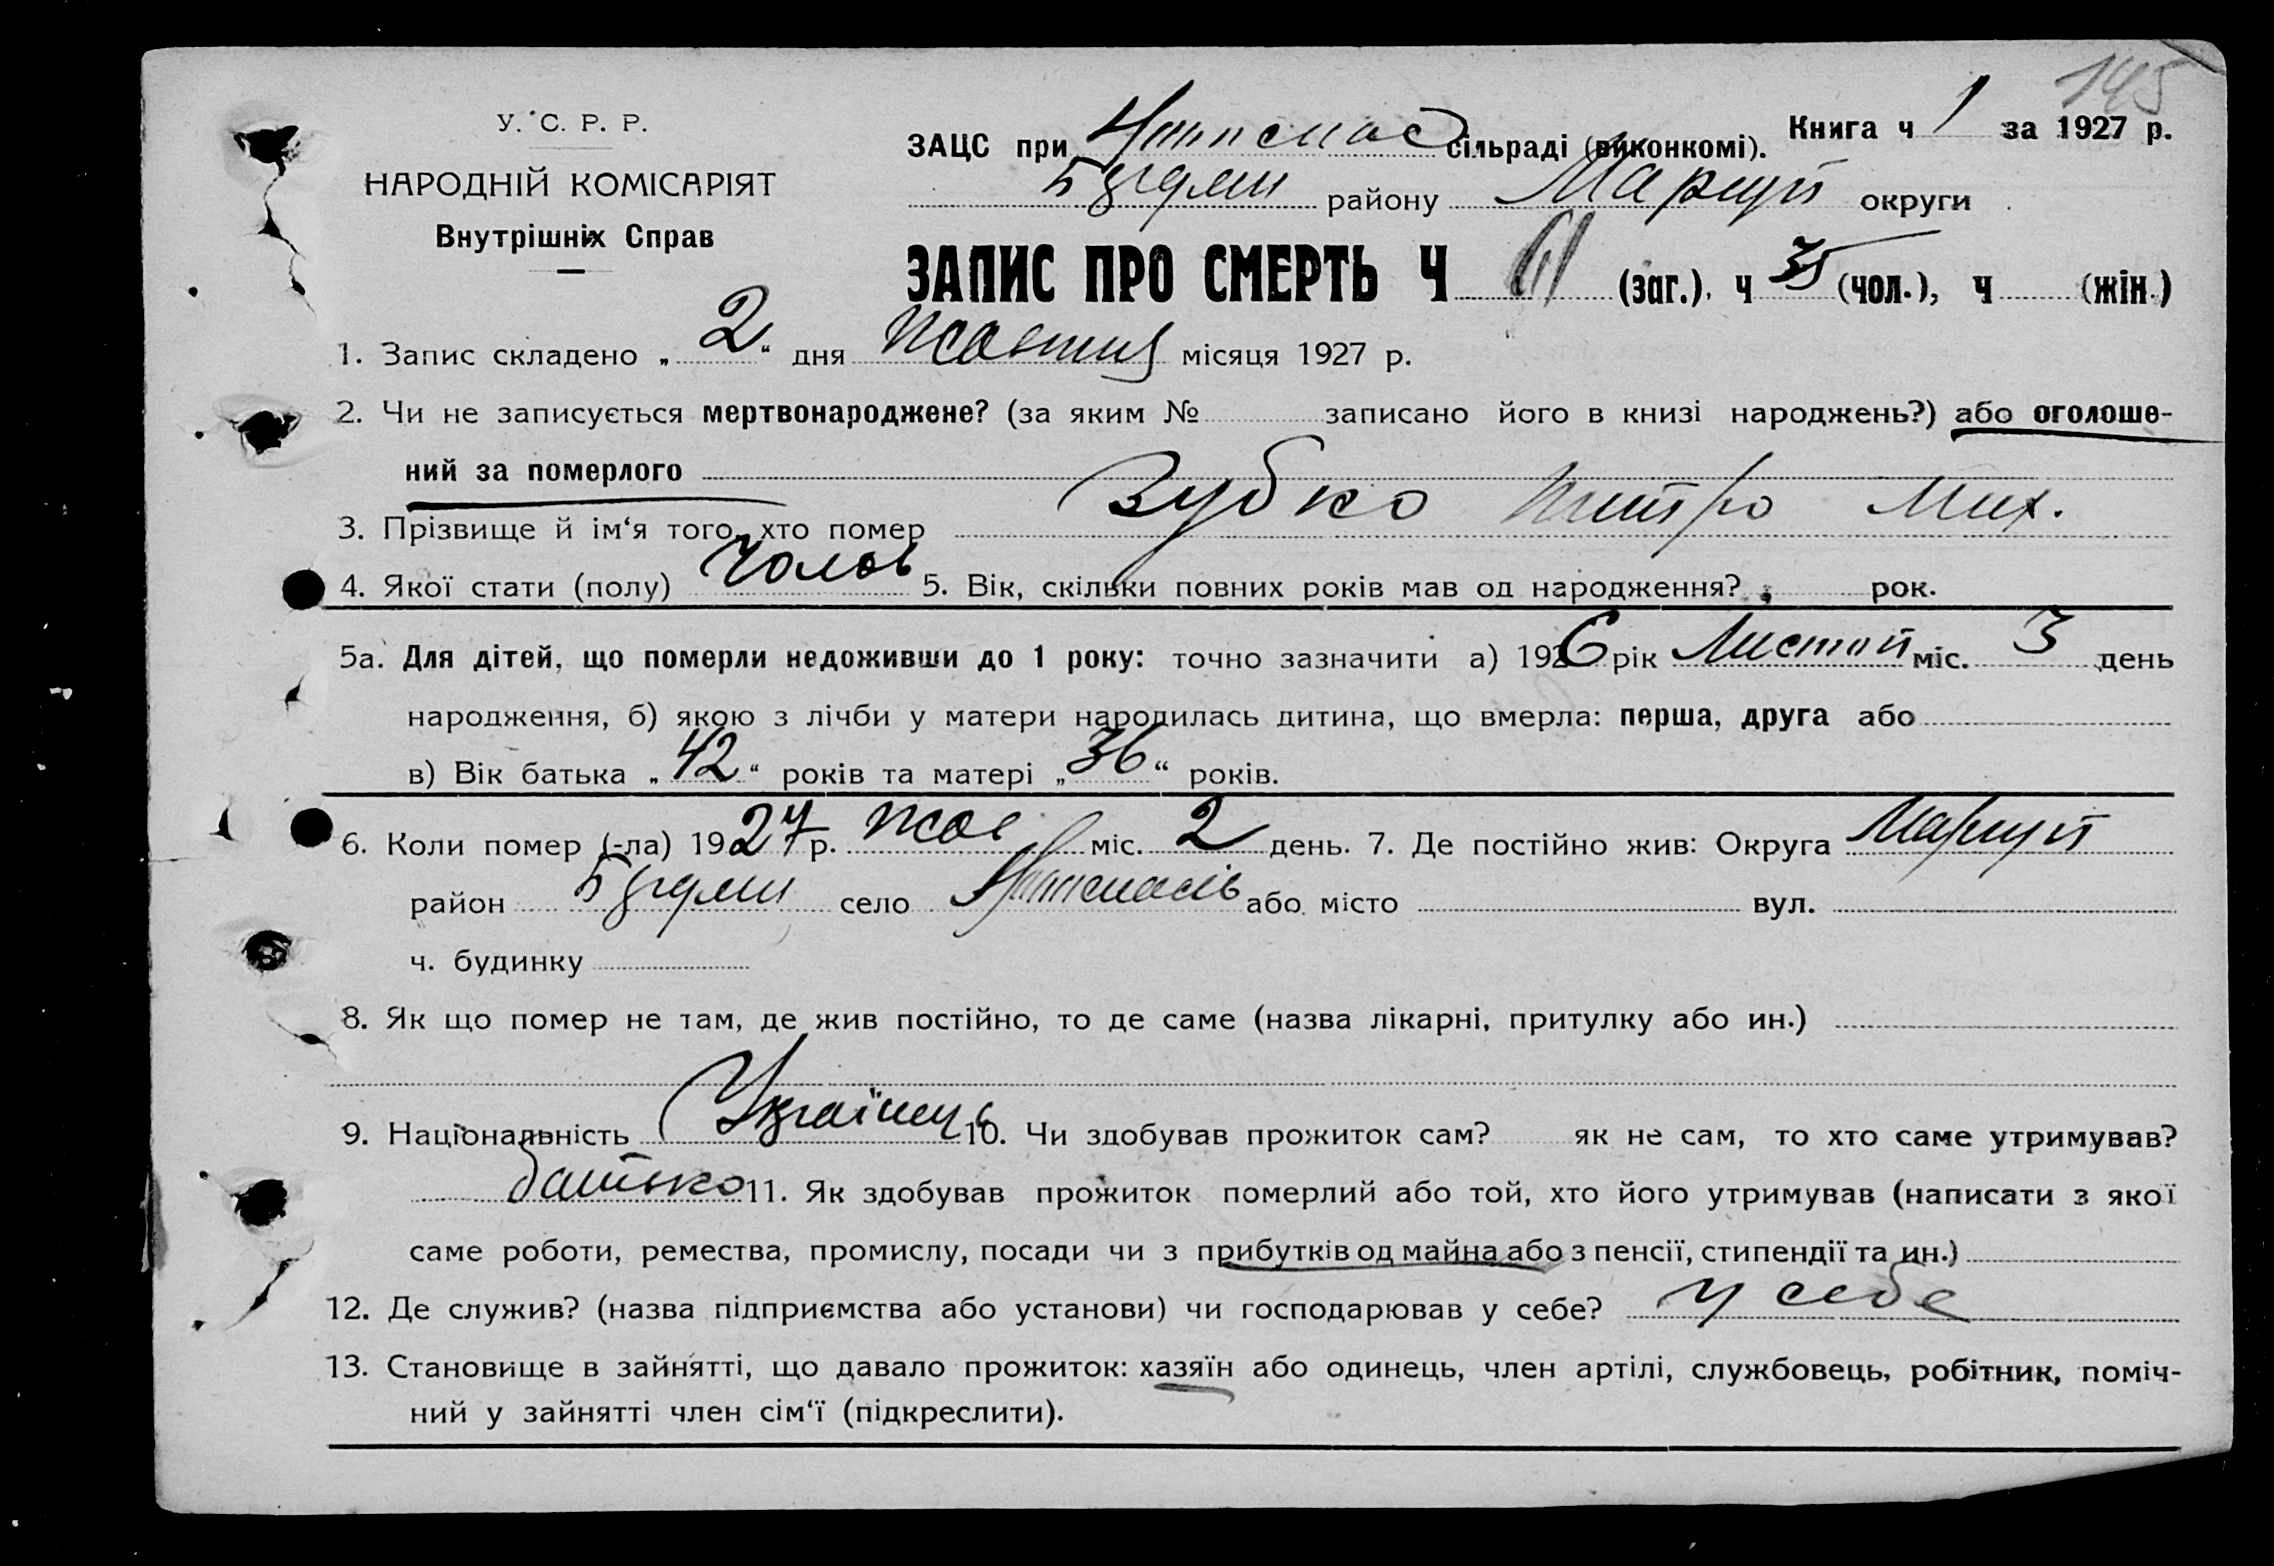 145
У. С. Р. Р.
НАРОДНІЙ КОМІСАРІЯТ
Внутрішніх Справ
ЗАЦС при сільраді (виконкомі). Книга ч 1 за 1927 р.
району Маріуп округи
ЗАПИС ПРО СМЕРТЬ Ч 61 (заг.), ч 35 (чол.), ч (жін.)
1. Запис складено „2“ дня Жовтня місяця 1927 р.
2. Чи не записується мертвонароджене? (за яким № записано його в книзі народжень?) або оголоше-
ний за померлого
3. Прізвище й ім‘я того, хто помер Зубко Митро Мих.
4. Якої стати (полу) Чолов 5. Вік, скільки повних років мав од народження? рок.
5а. Для дітей, що померли недоживши до 1 року: точно зазначити а) 1926 рік Листоп міс. 3 день
народження, б) якою з лічби у матери народилась дитина, що вмерла: перша, друга або
в) Вік батька „42“ років та матері „36“ років.
6. Коли помер (-ла) 1927 р. Жов міс. 2 день. 7. Де постійно жив: Округа Маріуп
район село або місто вул.
ч. будинку
8. Як що помер не там, де жив постійно, то де саме (назва лікарні, притулку або ин.)
9. Національність Українець 10. Чи здобував прожиток сам? як не сам, то хто саме утримував?
батько 11. Як здобував прожиток померлий або той, хто його утримував (написати з якої
саме роботи, ремества, промислу, посади чи з прибутків од майна або з пенсії, стипендії та ин.)
12. Де служив? (назва підприємства або установи) чи господарював у себе? у себе
13. Становище в зайнятті, що давало прожиток: хазяїн або одинець, член артілі, службовець, робітник, поміч-
ний у зайнятті член сім‘ї (підкреслити).